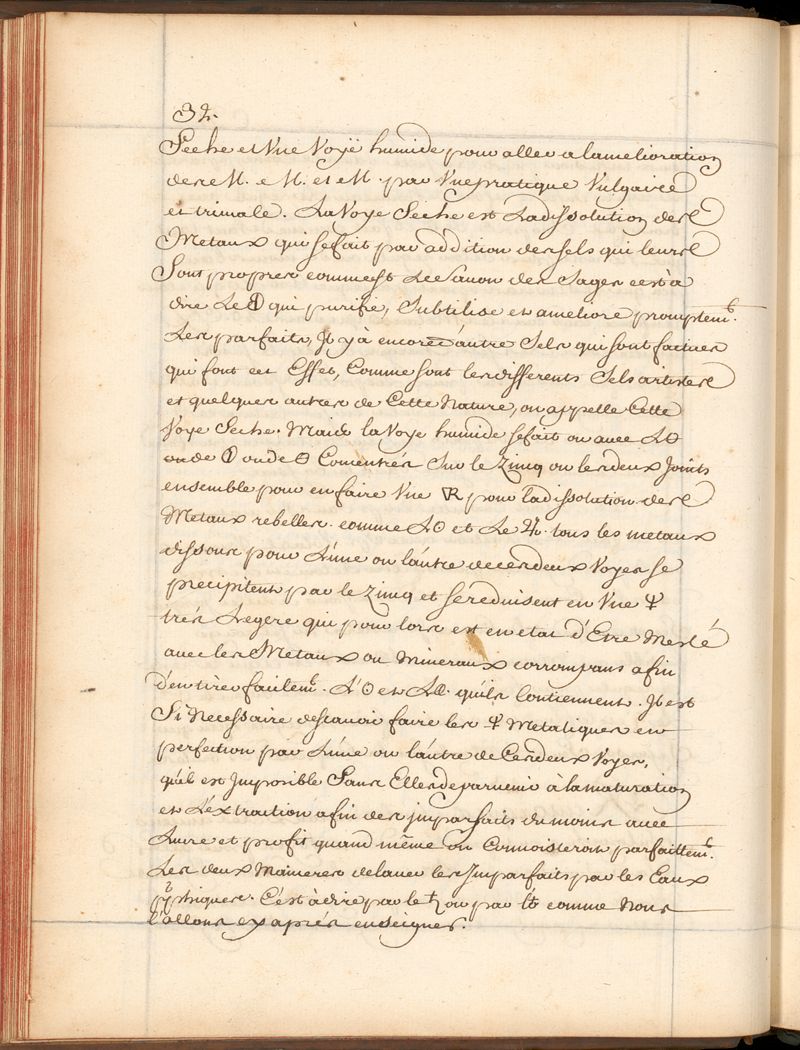 32.
Seche et Vne Voÿe humide pour aller a lamelioration
des M. e M. et M. par Vne pratique Vulgaire
et triuiale. La Voye Seche est Ladissolution des
Metaux qui sefait par addition des sels qui leurs
Sont propres comme est Le Sauon des Sages c'est à
dire Le 🜕 qui purifie, Subtilise et ameliore promptem.t
Les parfaits, Jl y à encore d'autre Sels qui sont factices
qui font cet Effet, Comme sont les differents Sels artistes
et quelques autres de Cette Nature, on appelle Cette
Voye Seche. Mais la Voye humide sefait ou auec
de 🜕 ou de 🜔 Concentrés Sur le Zinq ou les deux Joints
ensemble pour en faire Vne 🜆 pour ladissolution des
Metaux rebelles. comme L'☉ et Le ♃. tous les metaux
dissous pour L'une ou l'autre de ces deux Voyes se
precipitent par le Zinq et se réduisent en Vne 🜍
trés Legere qui pour lors est en etat d'Etre Meslé
auec les Metaux ou Mineraux corrompans afin
d'en tirer facilem.t L'☉ et qu'ils Contiennent. Jl est
Si Necessaire de scauoir faire les Metaliques en
perfection par L'une ou l'autre de Ces deux Voyes,
qu'il est Jmposible Sans Elles de paruenir à la maturation
et L'éxtraction afin des jmparfaits du moins auec
Lucre et profit quand même on Connoisteroit parfaittem.t
Les deux Manieres de lauer les Jmparfaits par les Eaux
C'est à dire par le ♄ ou par comme Nous
l'allons cy aprés enseigner.